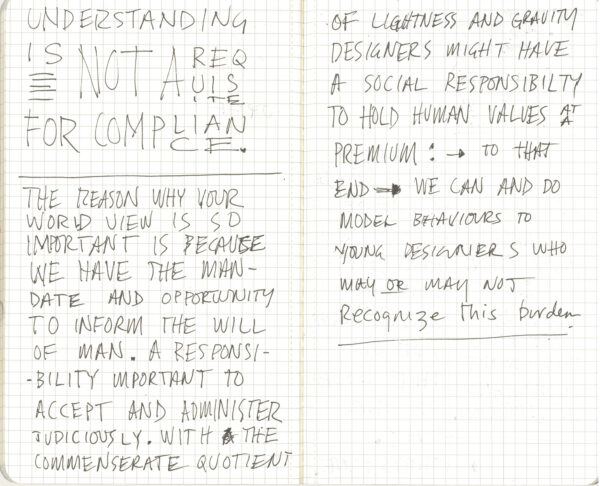 UNDERSTANDING
IS NOT A REQUISITE
FOR COMPLIANCE.
THE REASON WHY YOUR
WORLD VIEW IS SO
IMPORTANT IS BECAUSE
WE HAVE THE MAN-
DATE AND OPPORTUNITY
TO INFORM THE WILL
OF MAN. A RESPONSI-
-BILITY IMPORTANT TO
ACCEPT AND ADMINISTER
JUDICIOUSLY. WITH THE
COMMENSERATE QUOTIENT
OF LIGHTNESS AND GRAVITY
DESIGNERS MIGHT HAVE
A SOCIAL RESPONSIBILTY
TO HOLD HUMAN VALUES AT A
PREMIUM: → TO THAT
END → WE CAN AND DO
MODEL BEHAVIOURS TO
YOUNG DESIGNERS WHO
MAY OR MAY NOT
Recognize this burden